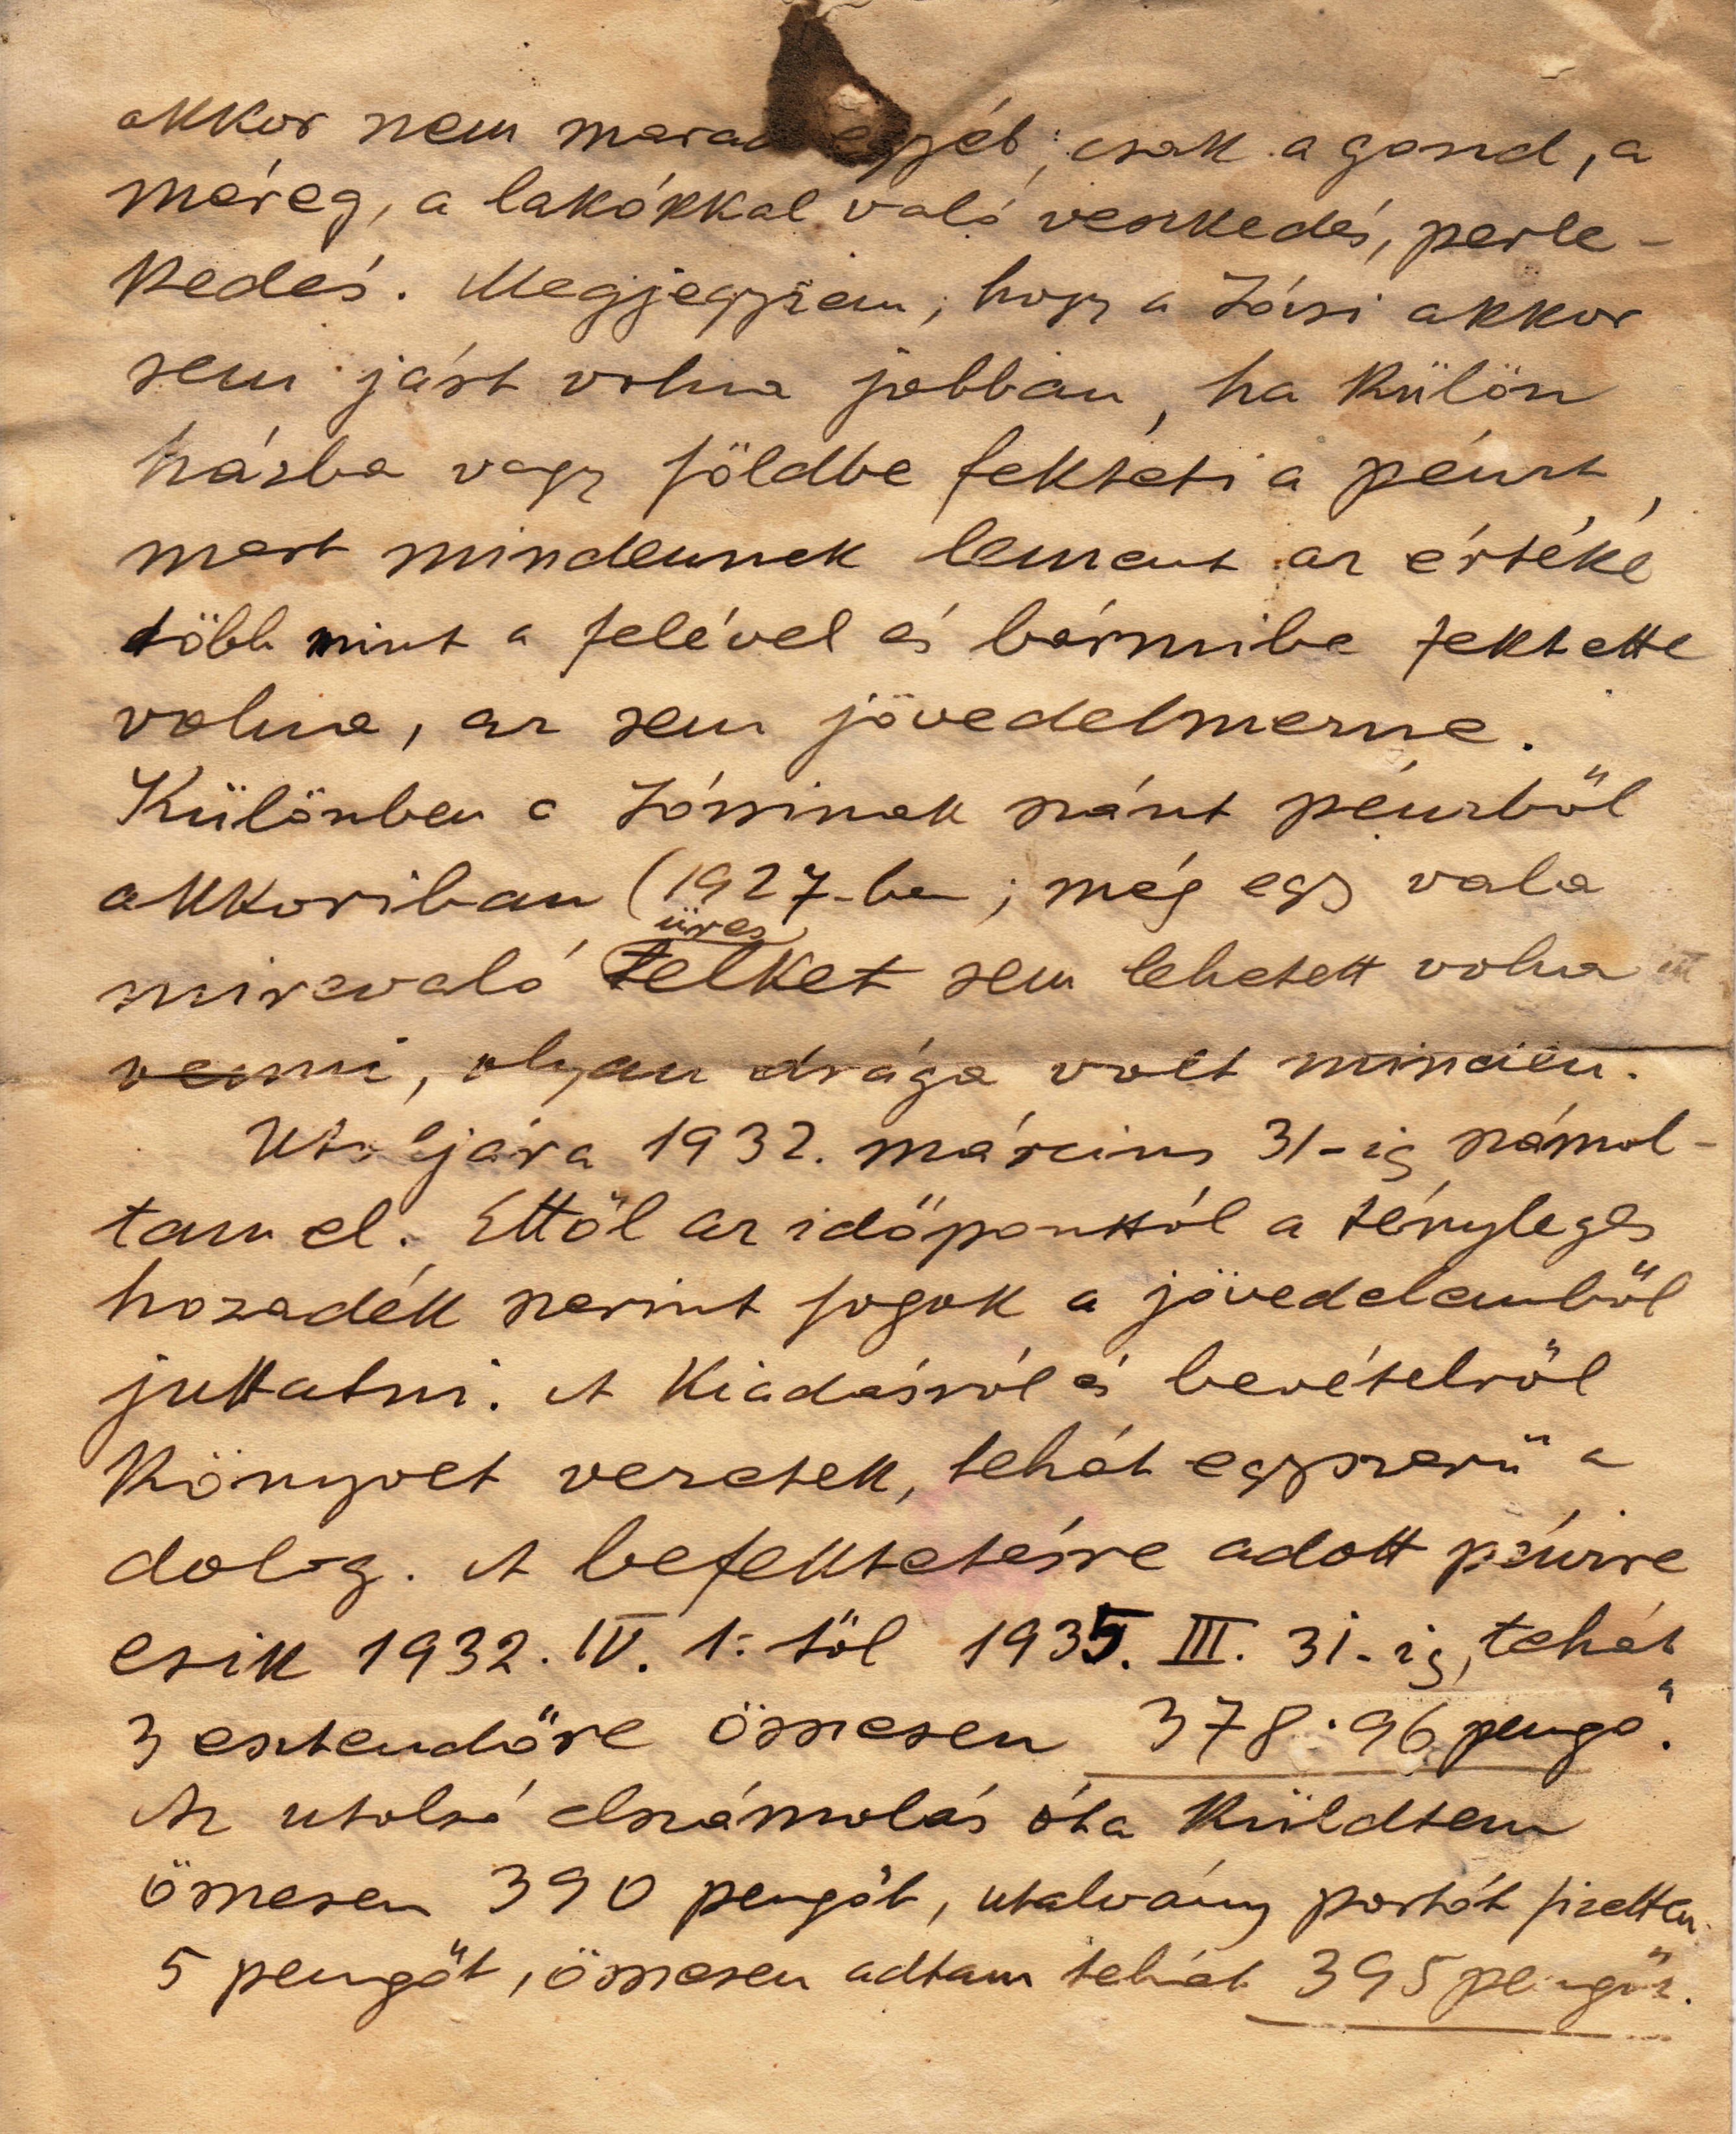 akkor nem marad egyéb, csak a gond, a
méreg, a lakókkal való veszkedés, perle-
kedés. Megjegyzem, hogy a Józsi akkor
sem járt volna jobban, ha külön
házba vagy földbe fekteti a pénzt,
mert mindennek lement az értéke
több mint a felével és bármibe fektette
volna, az sem jövedelmezne.
Különben a Józsinak szánt pénzből
akkoriban (1927-be; még egy vala
mirevaló üres telket sem lehetett volna
venni, olyan drága volt minden.
Utoljára 1932. március 31-ig számol-
tam el. Ettől az időponttól a tényleges
hozadék szerint fogok a jövedelemből
juttatni. A kiadásról és bevételről
könyvet vezetek, tehát egyszerű a
dolog. A befektetésre adott pénzre
esik 1932. IV. 1.-től 1935. III. 31-ig, tehát
3 esztendőre összesen 378.96 pengő.
Az utolsó elszámolás óta küldtem
összesen 390 pengőt, utalvány portót fizettem
5 pengőt, összesen adtam tehát 395 pengőt.